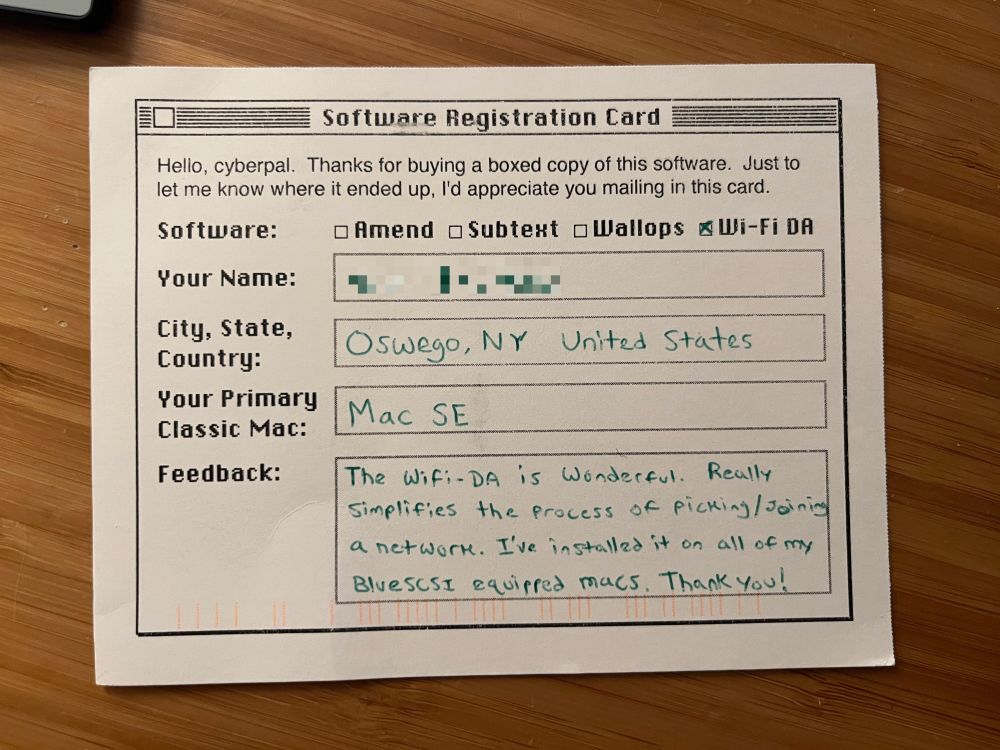 Software Registration Card
Hello, cyberpal. Thanks for buying a boxed copy of this software. Just to
let me know where it ended up, I'd appreciate you mailing in this card.
Software: Amend Subtext Wallops Wi-Fi DA
Your Name:
City, State,
Country:
Oswego, NY United States
Your Primary
Classic Mac:
Mac SE
Feedback:
The WiFi-DA is Wonderful. Really
simplifies the process of picking/joining
a network. I've installed it on all of my
BlueSCSI equipped macs. Thank you!